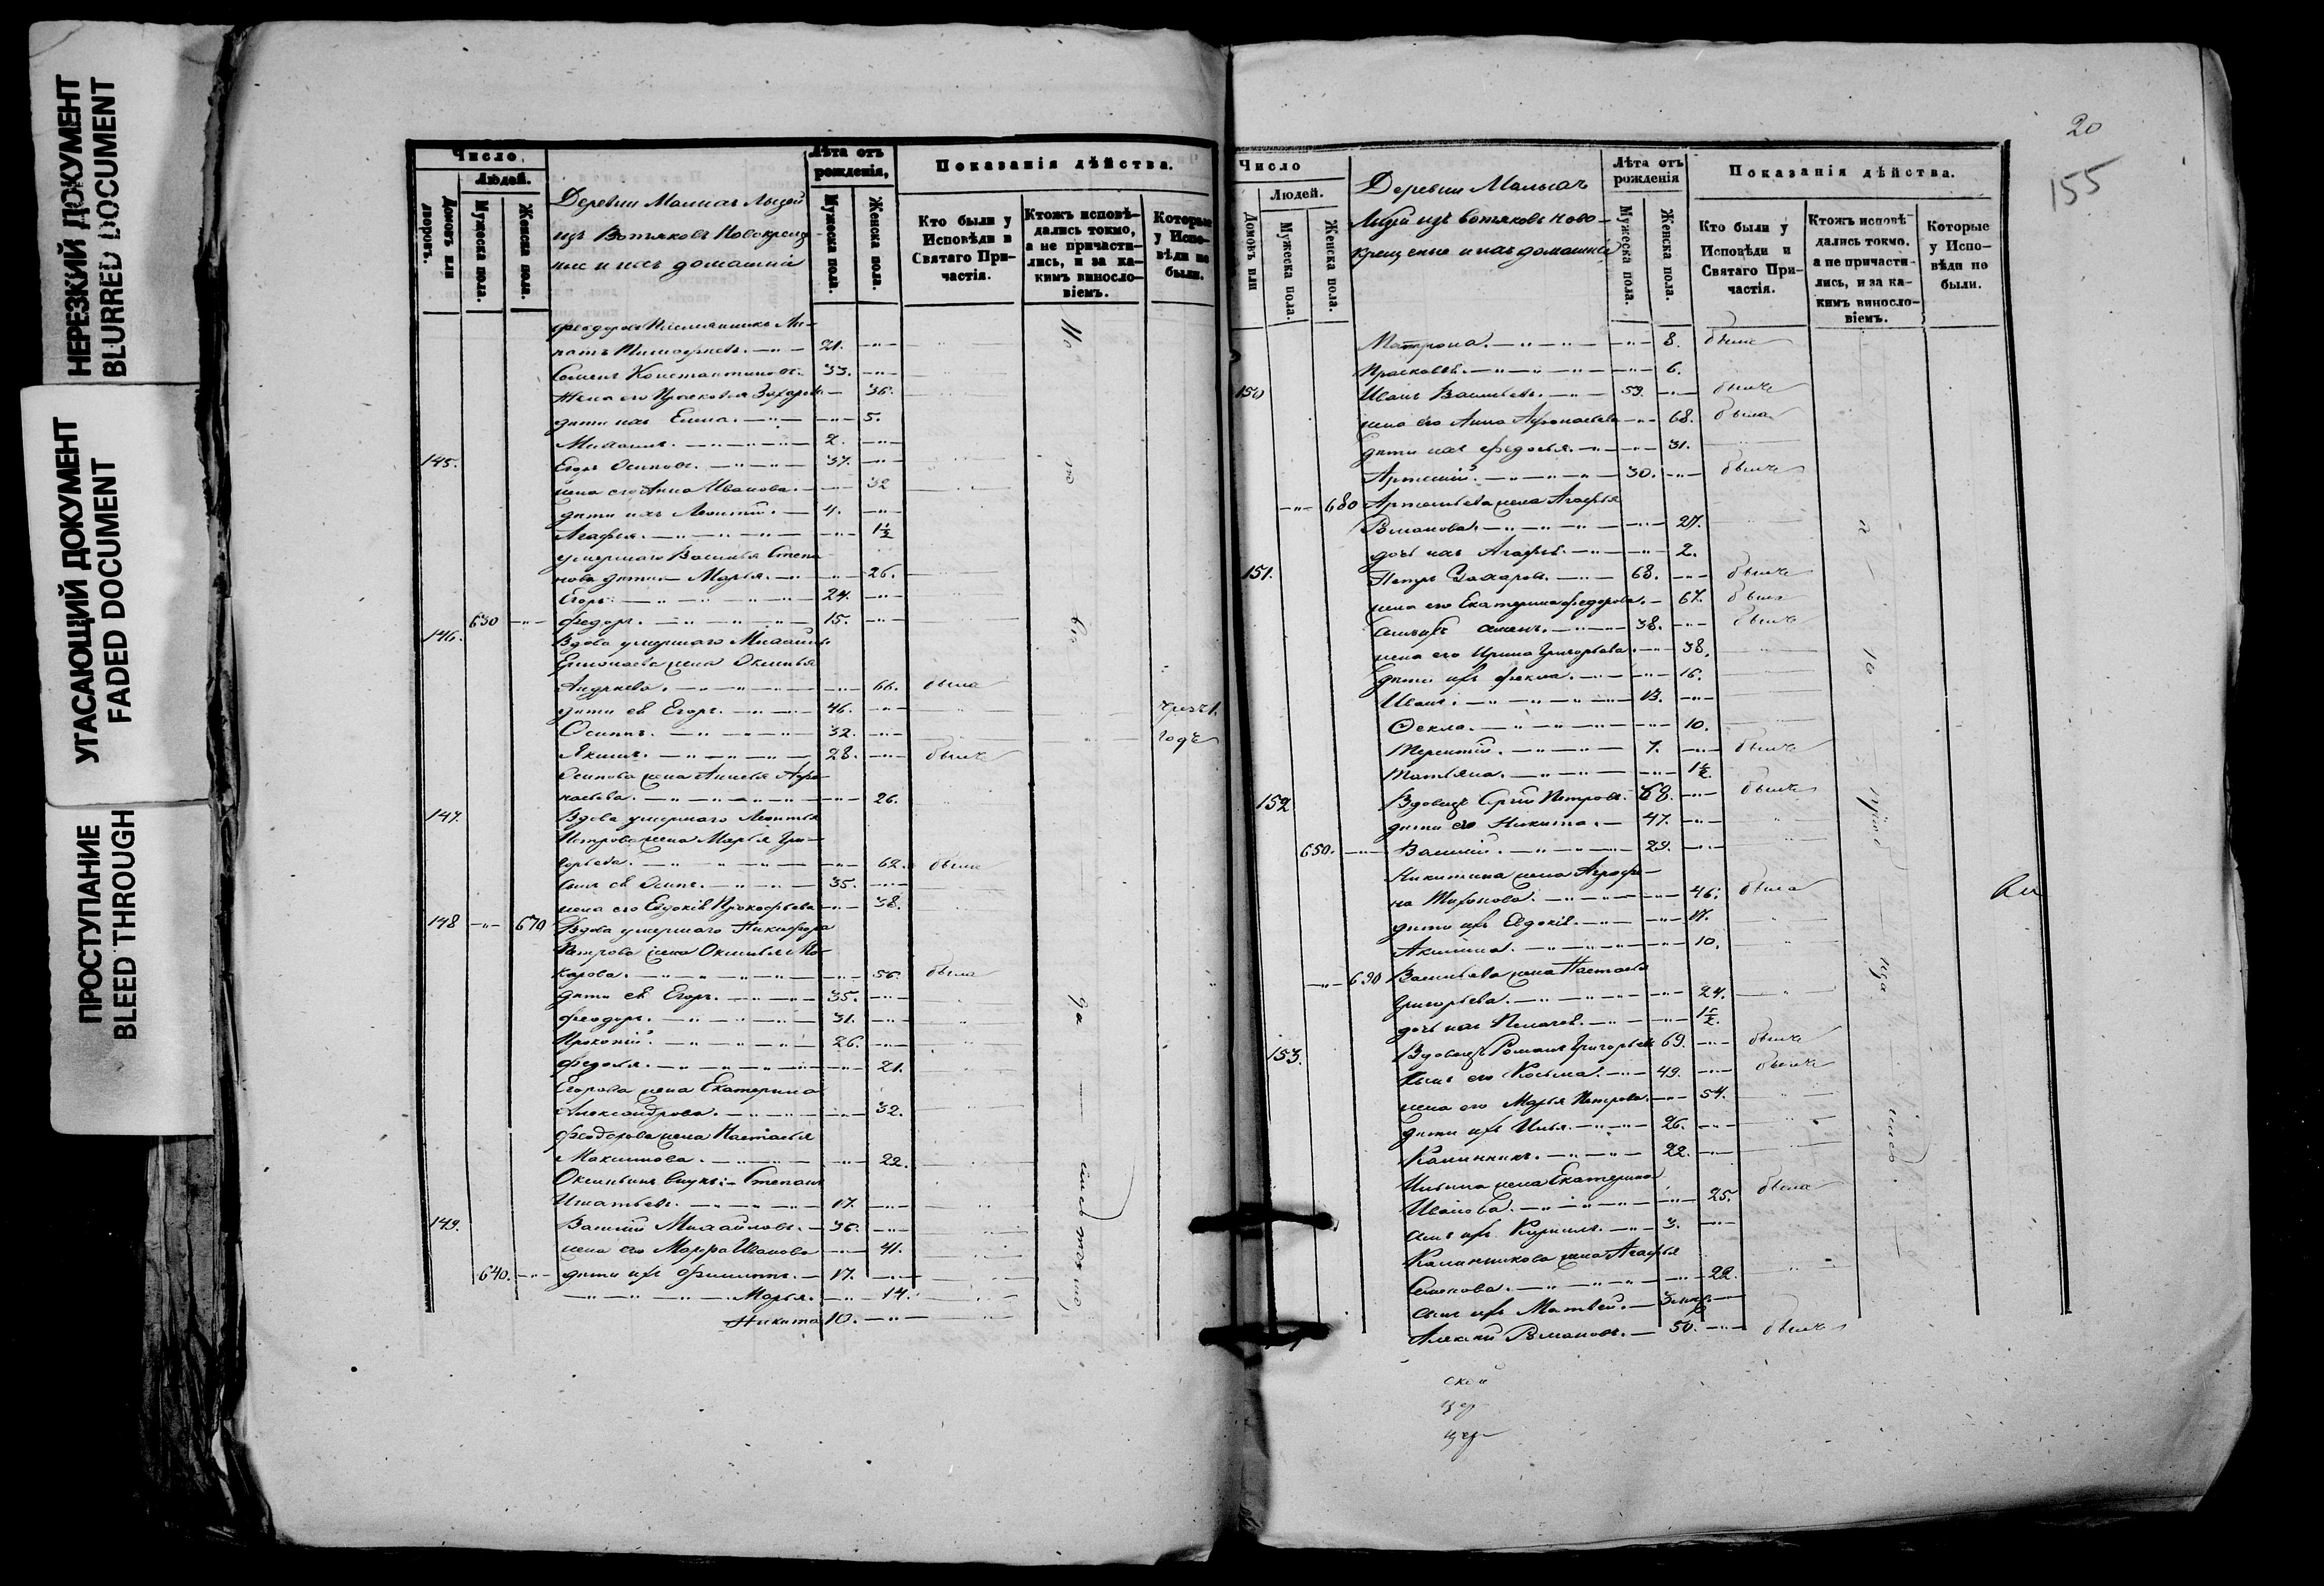 НЕРЕЗКИЙ ДОКУМЕНТ
BLURRED DOCUMENT
УГАСАЮЩИЙ ДОКУМЕНТ
FADED DOCUMENT
ПРОСТУПАНИЕ
BLEED THROUGH
Число
Людей.
Домовъ или дворовъ.
Мужеска пола.
Женска пола.
Деревни Малмаъ Людей
изъ Вотяковъ Новокрещ-
ные и ихъ домашніи
Лѣта отъ рожденія,
Мужеска пола.
Женска пола.
Показанія дѣйства.
Кто были у Исповѣди и Святаго Причастія.
Ктожъ исповѣ-
дались токмо,
а не причасти-
лись, и за ка-
кимъ винословіемъ.
Которые
у Испо-
вѣди не
были.
Феодоровъ племянникъ
Тимофеевъ. 21.
Семенъ Константиновъ. 33.
Жена его Прасковья Захарова 36.
дѣти ихъ Елена. 5.
Михаилъ. 2.
145. Егоръ Осиповъ. 37.
жена его Анна Иванова. 32
дѣти ихъ Леонтій. 4.
Агафья. 1½
умершаго Василья Степа-
нова дѣти Марья. 26.
Егоръ. 24.
630 Федоръ. 15.
146. Вдова умершаго Михаила
жена Окилина
Андреева. 66. была
дѣти ея Егоръ. 46. чрезъ 1.
Осипъ. 32. годъ
Якимъ. 28. былъ
Осипова жена Афо-
насьева. 26.
147. Вдова умершаго Леонтья
Петрова жена Марья Гри-
горьева. 62. была
сынъ ея Осипъ. 35.
жена его Евдокія Прокофьева 38.
148 670 Вдова умершаго Никифора
Петрова жена Окилина Ма-
карова. 56. была
дѣти ея Егоръ. 35.
Феодоръ. 31.
Прокопій. 26.
Федосья. 21.
Егорова жена Екатерина
Александрова. 32.
Феодорова жена Настасья
Максимова. 22.
внукъ Степанъ
Игнатьевъ. 17.
149. Василій Михайловъ. 36.
жена его Марфа Иванова 41.
640. дѣти ихъ Филиппъ. 17.
Марья. 14.
Никита 10.
20
155
Число
Людей.
Домовъ или
Мужеска пола.
Женска пола.
Деревни Малмаъ
Людей изъ вотяковъ ново-
крещеные и ихъ домашніи
Лѣта отъ рожденія
Мужеска пола.
Женска пола.
Показанія дѣйства.
Кто были у
Исповѣди и
Святаго При-
частія.
Ктожъ исповѣ-
дались токмо.
а не причасти-
лись, и за ка-
кимъ винословіемъ.
Которые
у Испо-
вѣди не
были.
Матрона. 8. была
Прасковья. 6.
150 Иванъ Васильевъ. 59. былъ
жена его Анна Афонасьева 68. была
дѣти ихъ Федосья. 31.
Артемій. 30. былъ
680 Артемьева жена Агафья
Романова. 27.
дочь ихъ Агафья. 2.
151. Петръ Захаровъ. 68. былъ
жена его Екатерина Федорова. 67. была
сынъ ихъ 38. былъ
жена его Ирина Григорьева. 38.
дѣти ихъ Фекла. 16.
Иванъ. 13.
Фекла. 10.
Терентій. 7. былъ
Татьяна. 1½.
152 Вдовецъ Сергій Петровъ. 68. былъ
дѣти его Никита. 47.
650. Василій. 29.
Никитина жена Агрофе-
на Тихонова. 46. была
дѣти ихъ Евдокія. 17.
Акилина. 10.
690 Васильева жена Настасья
Григорьева. 24.
дочь ихъ Пелагея. 1½.
153. Вдовецъ Романъ Григорьевъ 69. былъ
сынъ его Косьма. 49. былъ
жена его Марья Петрова. 54.
дѣти ихъ Илья. 26.
Калинникъ. 22.
Ильина жена Екатерина
Иванова. 25. была
сынъ ихъ Кириллъ. 3.
Калинникова жена Агафья
Семенова. 22.
сынъ ихъ Матвей.
Алексій Романовъ. 50. былъ
ской